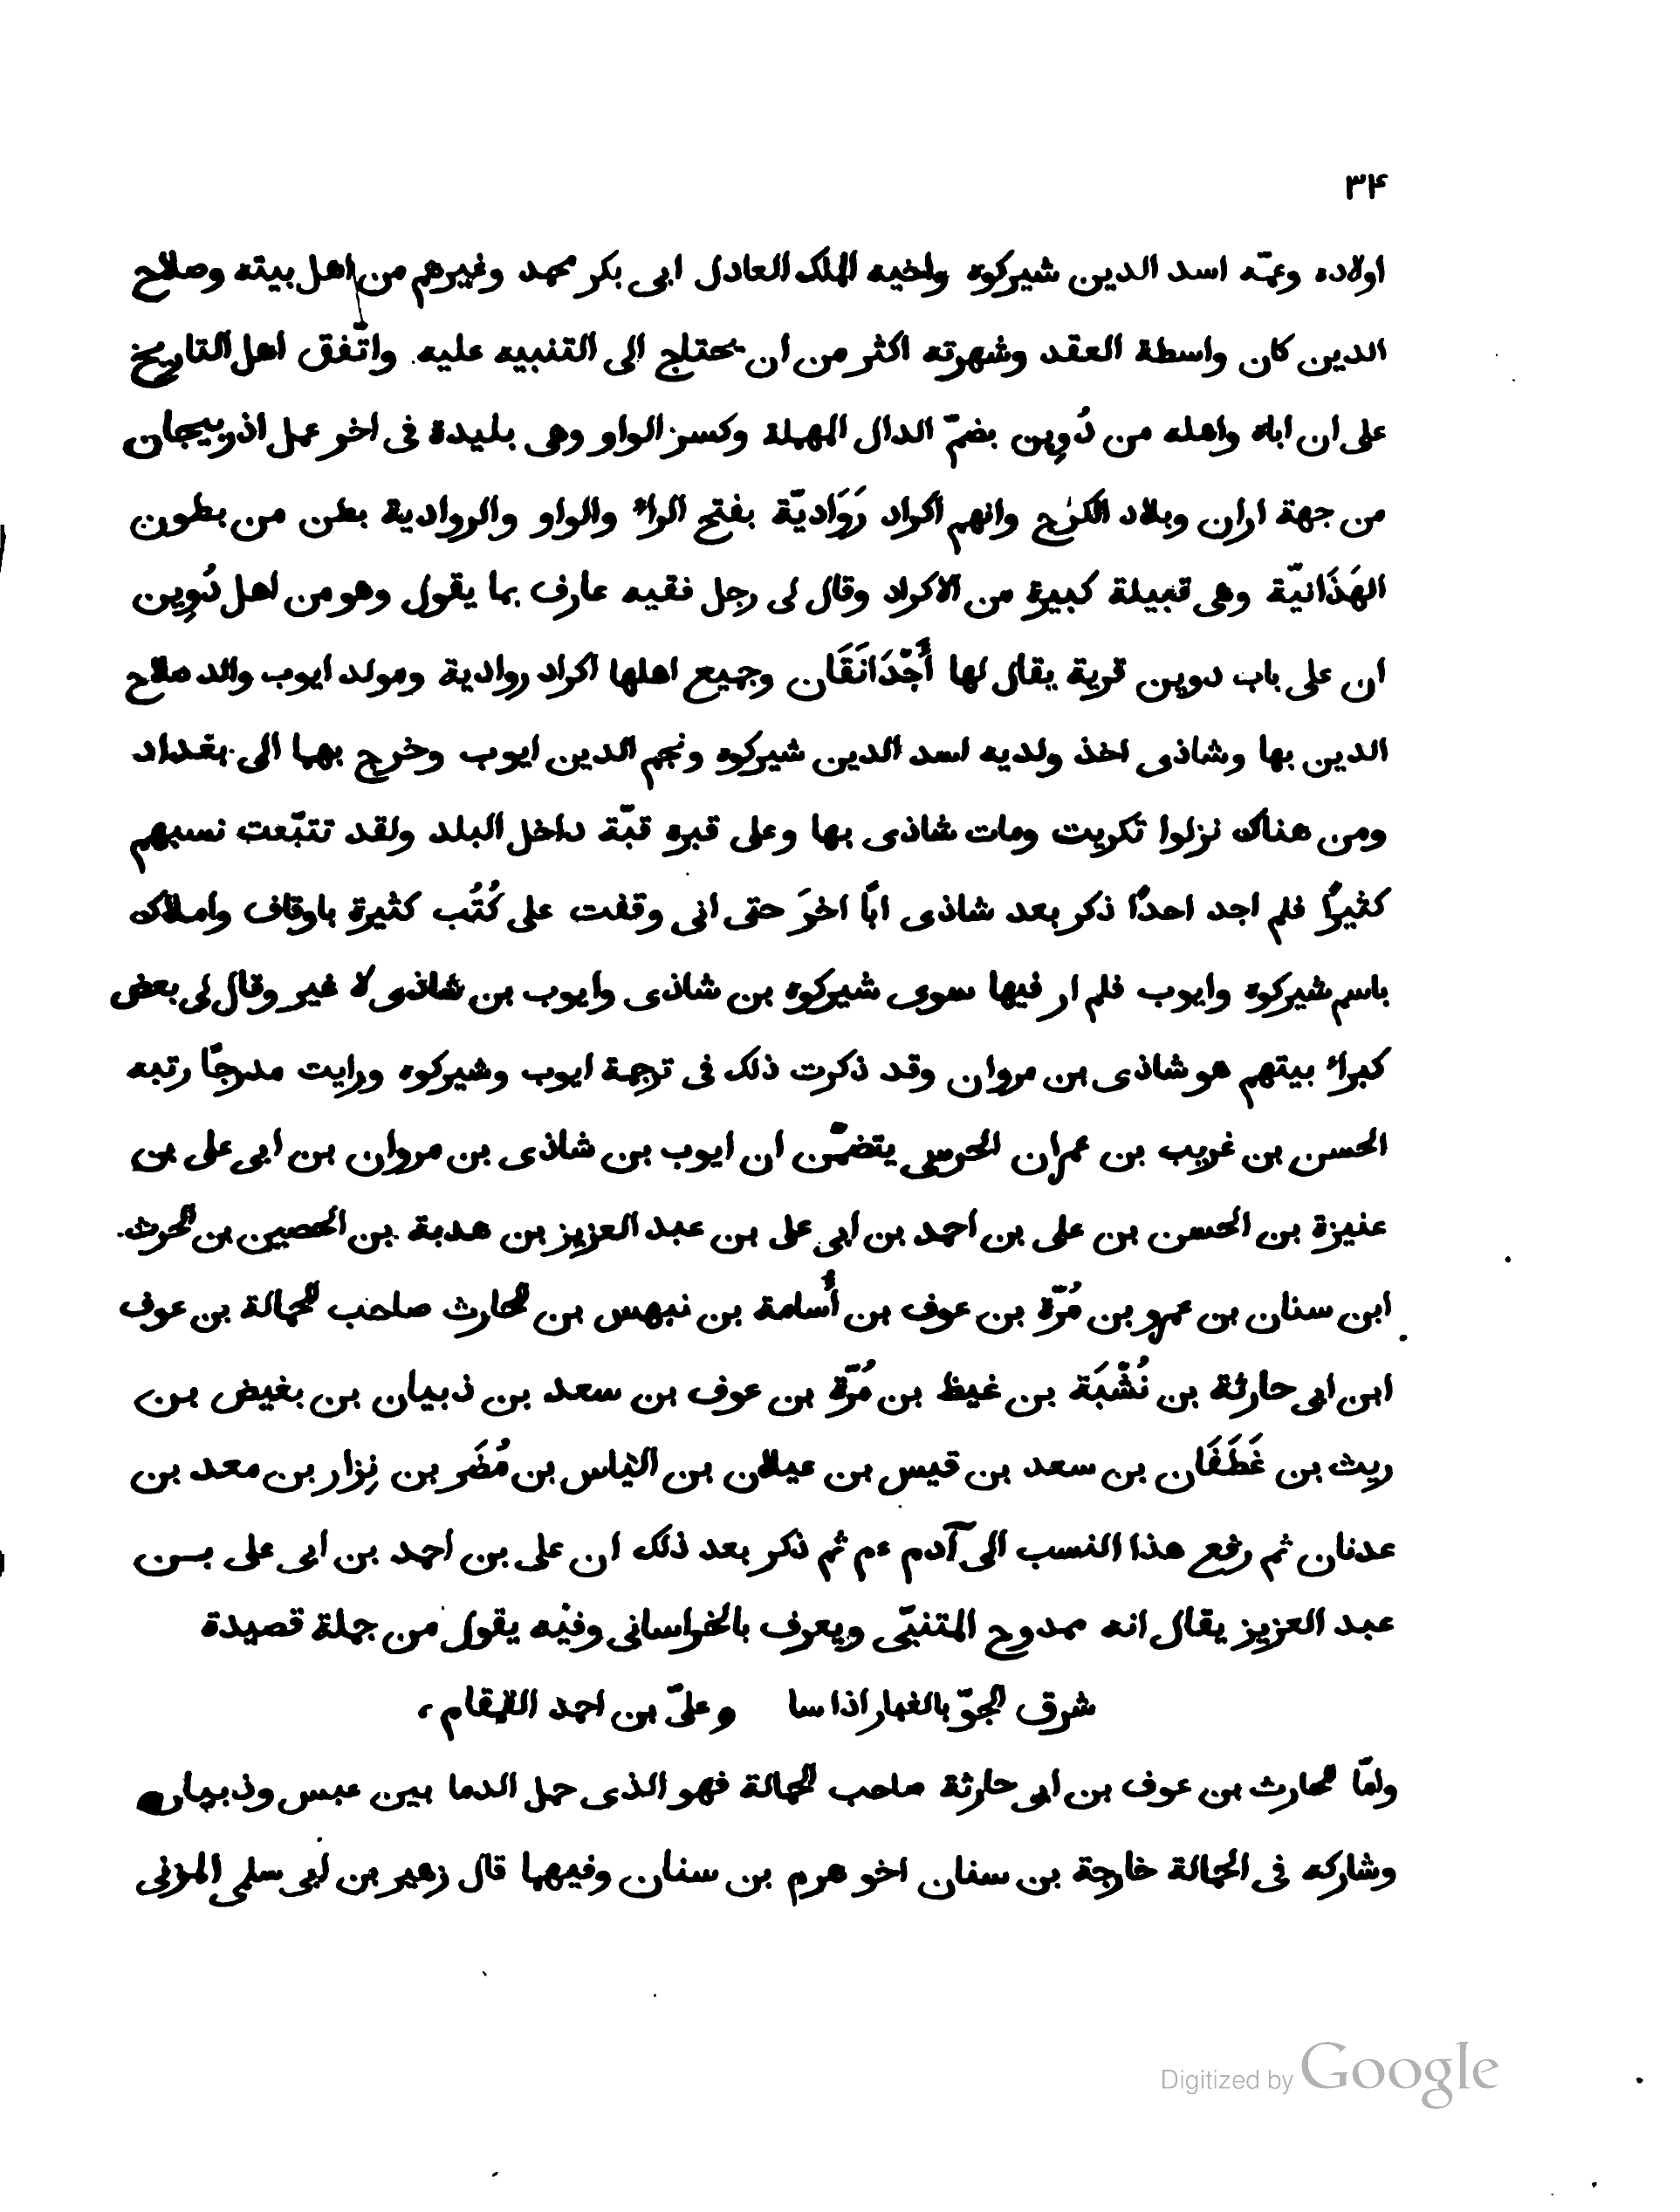 ٣۴
اولاده وعمّه اسد الدين شيركوه واخيه الملك العادل ابى بكر محمد وغيرهم من اهل بيته وصلاح
الدين كان واسطة العقد وشهرته اكثر من ان يحتاج الى التنبيه عليه واتّفق اهل التاريخ
على ان اباه واهله من دُوِين بضمّ الدال المهملة وكسر الواو وهى بليدة فى اخر عمل اذربيجان
من جهة اران وبلاد الكرج وانهم اكراد رَوَاديّة بفتح الراء والواو والروادية بطن من بطون
الهَذَانيّة وهى قبيلة كبيرة من الاكراد وقال لى رجل فقيه عارف بما يقول وهو من اهل دُوِين
ان على باب دوين قرية يقال لها أُجْدَانَقَان وجميع اهلها اكراد روادية ومولد ايوب والد صلاح
الدين بها وشاذى اخذ ولديه اسد الدين شيركوه ونجم الدين ايوب وخرج بهما الى بغداد
ومن هناك نزلوا تكريت ومات شاذى بها وعلى قبره قبّة داخل البلد ولقد تتبّعت نسبهم
كثيرًا فلم اجد احدًا ذكر بعد شاذى ابًا اخرَ حتى انى وقفت على كُتُب كثيرة باوقاف واملاك
باسم شيركوه وايوب فلم ار فيها سوى شيركوه بن شاذى وايوب بن شاذى لا غير وقال لى بعض
كبراء بيتهم هو شاذى بن مروان وقد ذكرت ذلك فى ترجمة ايوب وشيركوه ورايت مدرجًا رتبه
الحسن بن غريب بن عمران الحرسى يتضمّن ان ايوب بن شاذى بن مروان بن ابى على بن
عنيزة بن الحسن بن على بن احمد بن ابى على بن عبد العزيز بن هدبة بن الحصين بن الحرث
ابن سنان بن عمرو بن مُرّة بن عوف بن أُسامة بن نبهس بن الحارث صاحب الحمالة بن عوف
ابن ابى حارثة بن نُشْبَة بن غيظ بن مُرّة بن عوف بن سعد بن ذبيان بن بغيض بن
ريث بن غَطَفَان بن سعد بن قيس بن عيلان بن الياس بن مُضَر بن نِزار بن معد بن
عدنان ثم رفع هذا النسب الى آدم عم ثم ذكر بعد ذلك ان على بن احمد بن ابى على بن
عبد العزيز يقال انه ممدوح المتنبّى ويعرف بالخراسانى وفيه يقول من جملة قصيدة
شرق الجوّ بالغبار اذا سا وعلىّ بن احمد القمقام،
وامّا الحارث بن عوف بن ابى حارثة صاحب الحمالة فهو الذى حمل الدما بين عبس وذبيان
وشاركه فى الحمالة خارجة بن سنان اخو هرم بن سنان وفيهما قال زهير بن ابى سلمى المزنى
Digitized by Google